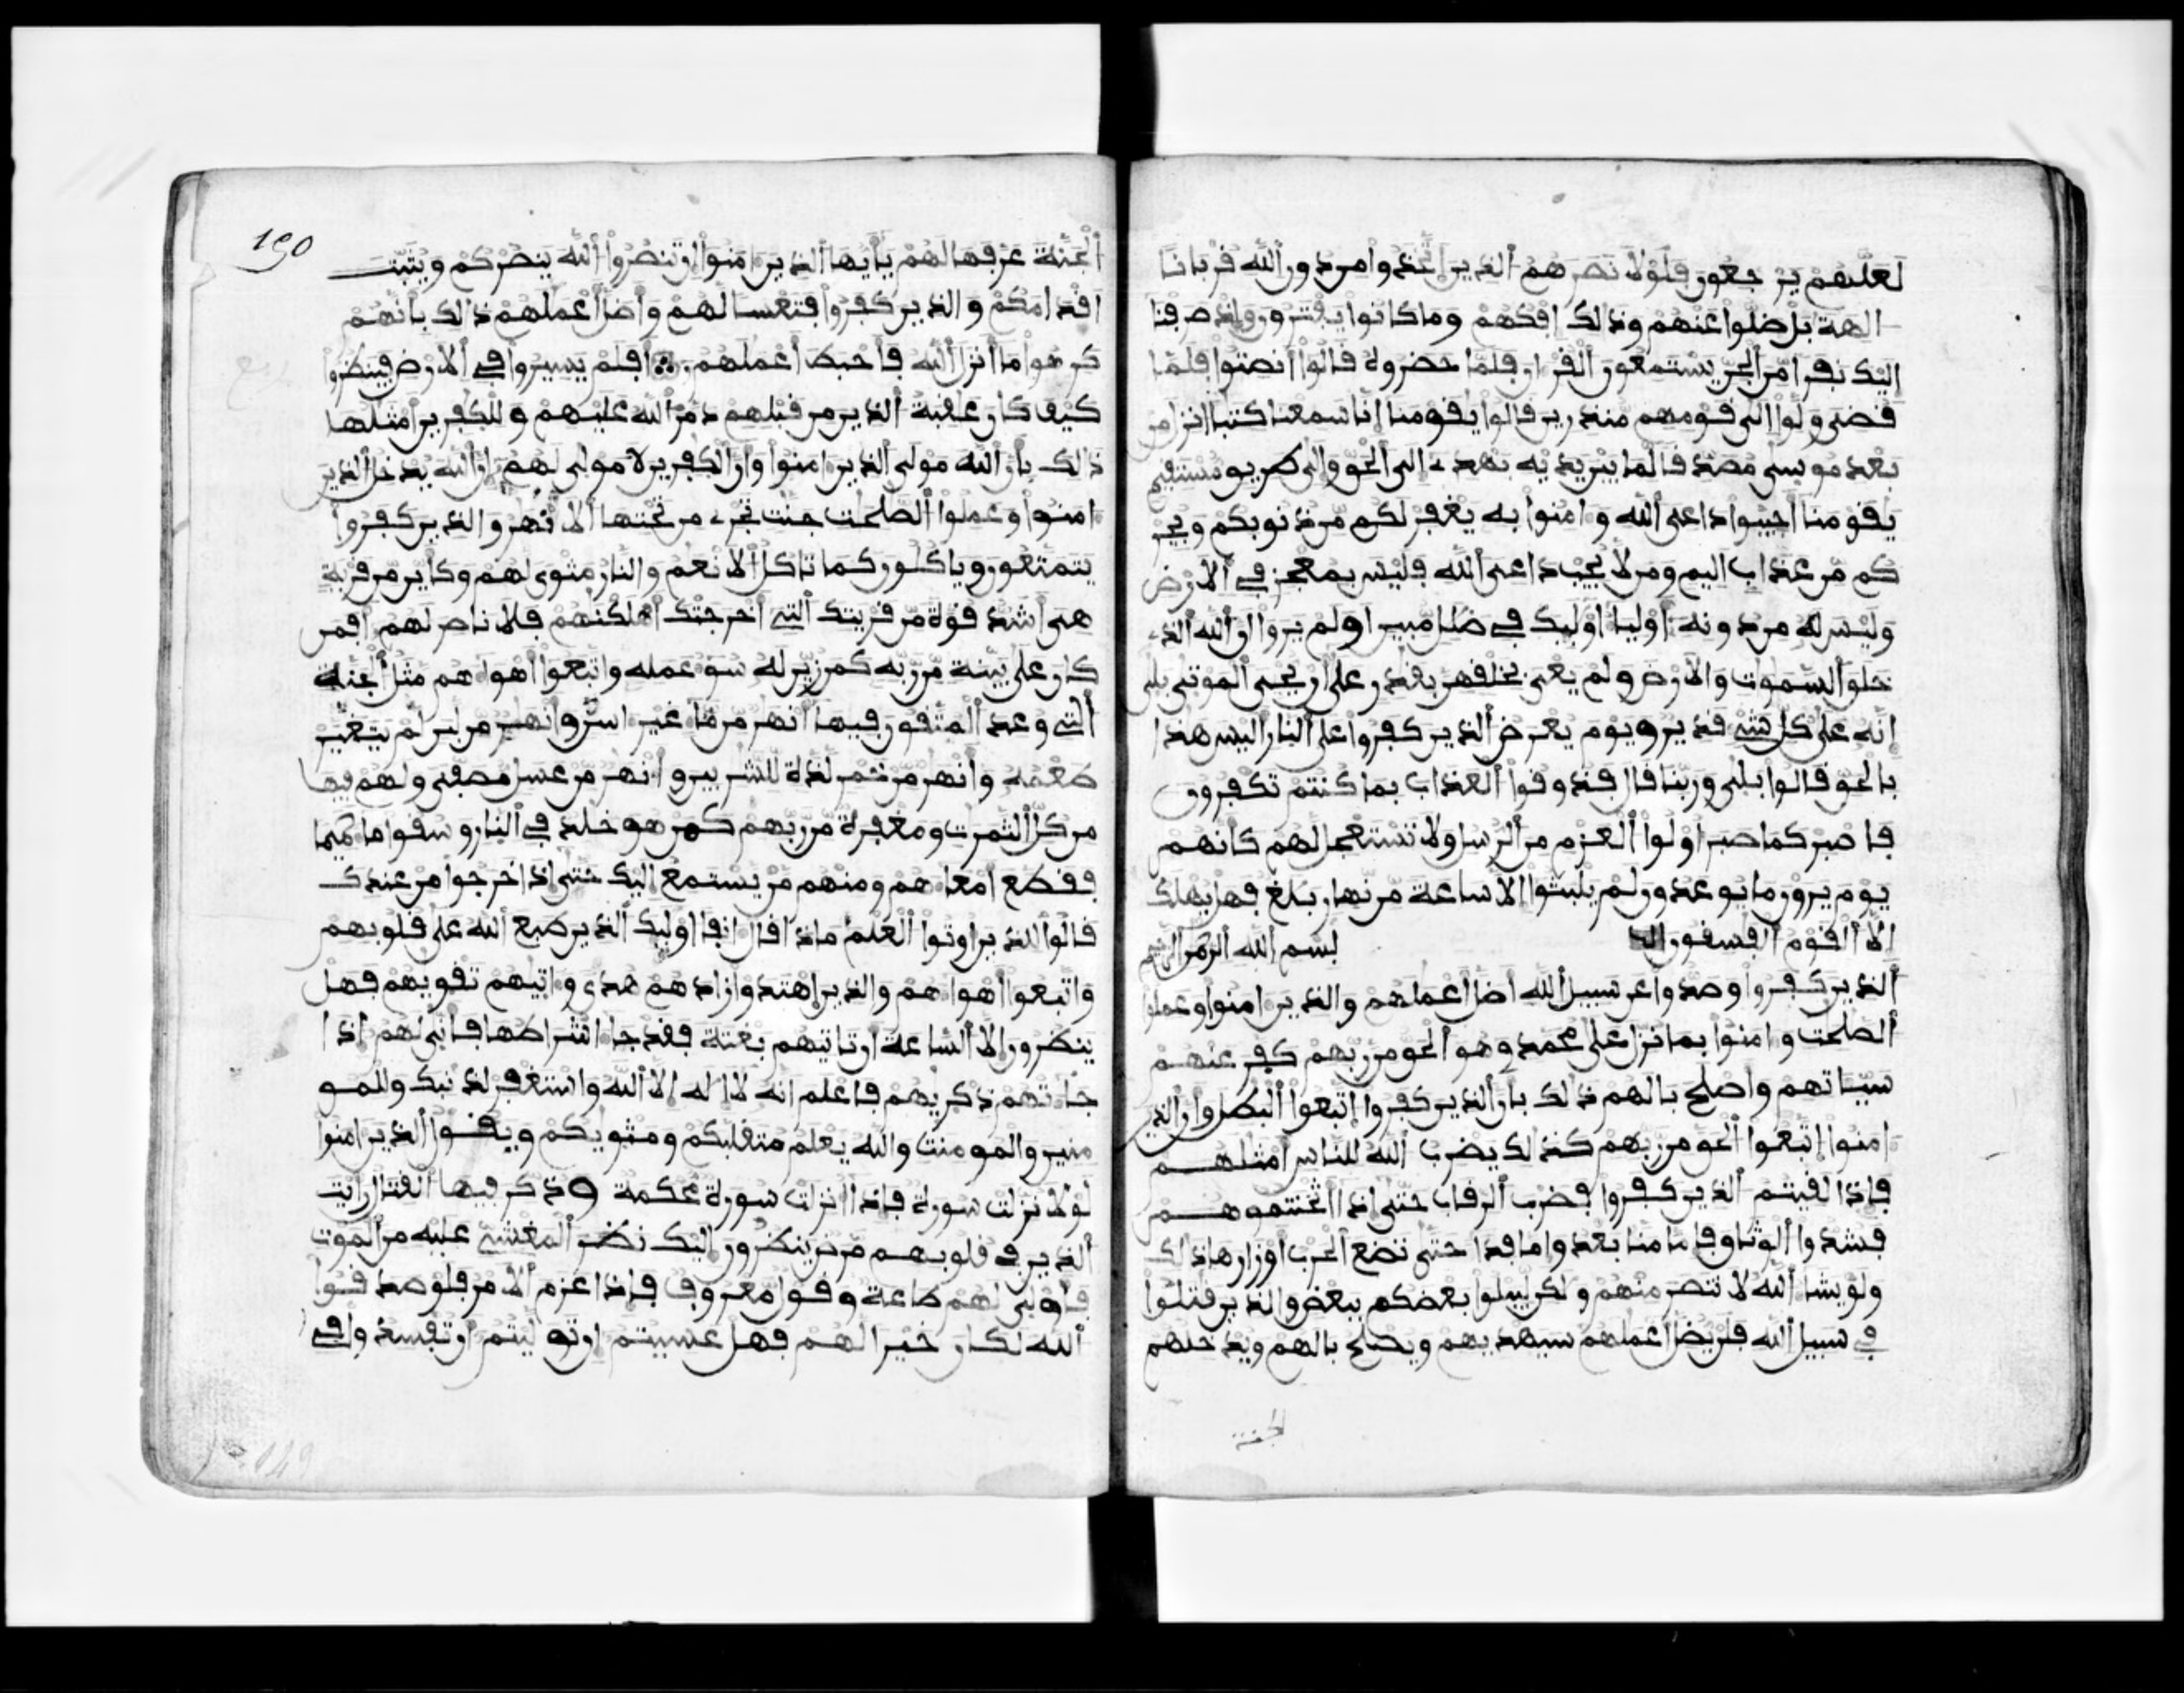 لعلهم يرجعون فلولا نصرهم الذين اتخذوا من دون الله قربانا
الهة بل ضلوا عنهم وذالك افكهم وما كانوا يفترون واذ صرفنا
اليك نفرا من الجن يستمعون القران فلما حضروه قالوا انصتوا فلما
قضى ولوا الى قومهم منذرين قالوا يقومنا انا سمعنا كتبا انزل من
بعد موسى مصدقا لما بين يديه يهدى الى الحق والى طريق مستقيم
يقومنا اجيبوا داعى الله وامنوا به يغفر لكم من ذنوبكم ويجر
كم من عذاب اليم ومن لا يجب داعى الله فليس بمعجز في الارض
وليس له من دونه اوليا اوليك في ضلل مبين اولم يروا ان الله الذى
خلق السموت والارض ولم يعى بخلقهن بقدر على ان يحى الموتى بلى
انه على كل شىء قدير ويوم يعرض الذين كفروا على النار اليس هذا
بالحق قالوا بلى وربنا قال فذوقوا العذاب بما كنتم تكفرون
فاصبر كما صبر اولوا العزم من الرسل ولا تستعجل لهم كانهم
يوم يرون ما يوعدون لم يلبثوا الا ساعة من نهار بلغ فهل يهلك
الا القوم الفسقون بسم الله الرحمن الرحيم
الذين كفروا وصدوا عن سبيل الله اضل اعملهم والذين امنوا وعملوا
الصلحت وامنوا بما نزل على محمد وهو الحق من ربهم كفر عنهم
سيياتهم واصلح بالهم ذلك بان الذين كفروا اتبعوا البطل وان الذين
امنوا اتبعوا الحق من ربهم كذلك يضرب الله للناس امثلهم
فاذا لقيتم الذين كفروا فضرب الرقاب حتى اذا اثخنتموهم
فشدوا الوثاق فاما منا بعد واما فدا حتى تضع الحرب اوزارها ذلك
ولو يشا الله لانتصر منهم ولكن ليبلوا بعضكم ببعض والذين قتلوا
في سبيل الله فلن يضل اعملهم سيهديهم ويصلح بالهم ويدخلهم
الجنة
190
الجنة عرفها لهم يايها الذين امنوا ان تنصروا الله ينصركم ويثبت
اقدامكم والذين كفروا فتعسا لهم واضل اعملهم ذلك بانهم
كرهوا ما انزل الله فاحبط اعملهم افلم يسيروا في الارض فينظروا
كيف كان عقبة الذين من قبلهم دمر الله عليهم وللكفرين امثلها
ذالك بان الله مولى الذين امنوا وان الكفرين لا مولى لهم ان الله يدخل الذين
امنوا وعملوا الصلحت جنت تجرى من تحتها الانهر والذين كفروا
يتمتعون وياكلون كما تاكل الانعم والنار مثوى لهم وكاين من قرية
هى اشد قوة من قريتك التى اخرجتك اهلكنهم فلا ناصر لهم افمن
كان على بينة من ربه كمن زين له سو عمله واتبعوا اهواهم مثل الجنة
التى وعد المتقون فيها انهر من ما غير اسن وانهر من لبن لم يتغير
طعمه وانهر من خمر لذة للشربين وانهر من عسل مصفى ولهم فيها
من كل الثمرت ومغفرة من ربهم كمن هو خلد في النار وسقوا ما حميما
فقطع امعاهم ومنهم من يستمع اليك حتى اذا خرجوا من عندك
قالوا للذين اوتوا العلم ماذا قال انفا اوليك الذين طبع الله على قلوبهم
واتبعوا اهواهم والذين اهتدوا زادهم هدى واتيهم تقويهم فهل
ينظرون الا الساعة ان تاتيهم بغتة فقد جا اشراطها فانى لهم اذا
جاتهم ذكريهم فاعلم انه لا اله الا الله واستغفر لذنبك وللمو
منين والمومنت والله يعلم متقلبكم ومثويكم ويقول الذين امنوا
لولا نزلت سورة فاذا انزلت سورة محكمة وذكر فيها القتال رايت
الذين في قلوبهم مرض ينظرون اليك نظر المغشى عليه من الموت
فاولى لهم طاعة وقول معروف فاذا عزم الامر فلو صدقوا
الله لكان خيرا لهم فهل عسيتم ان توليتم ان تفسدوا في